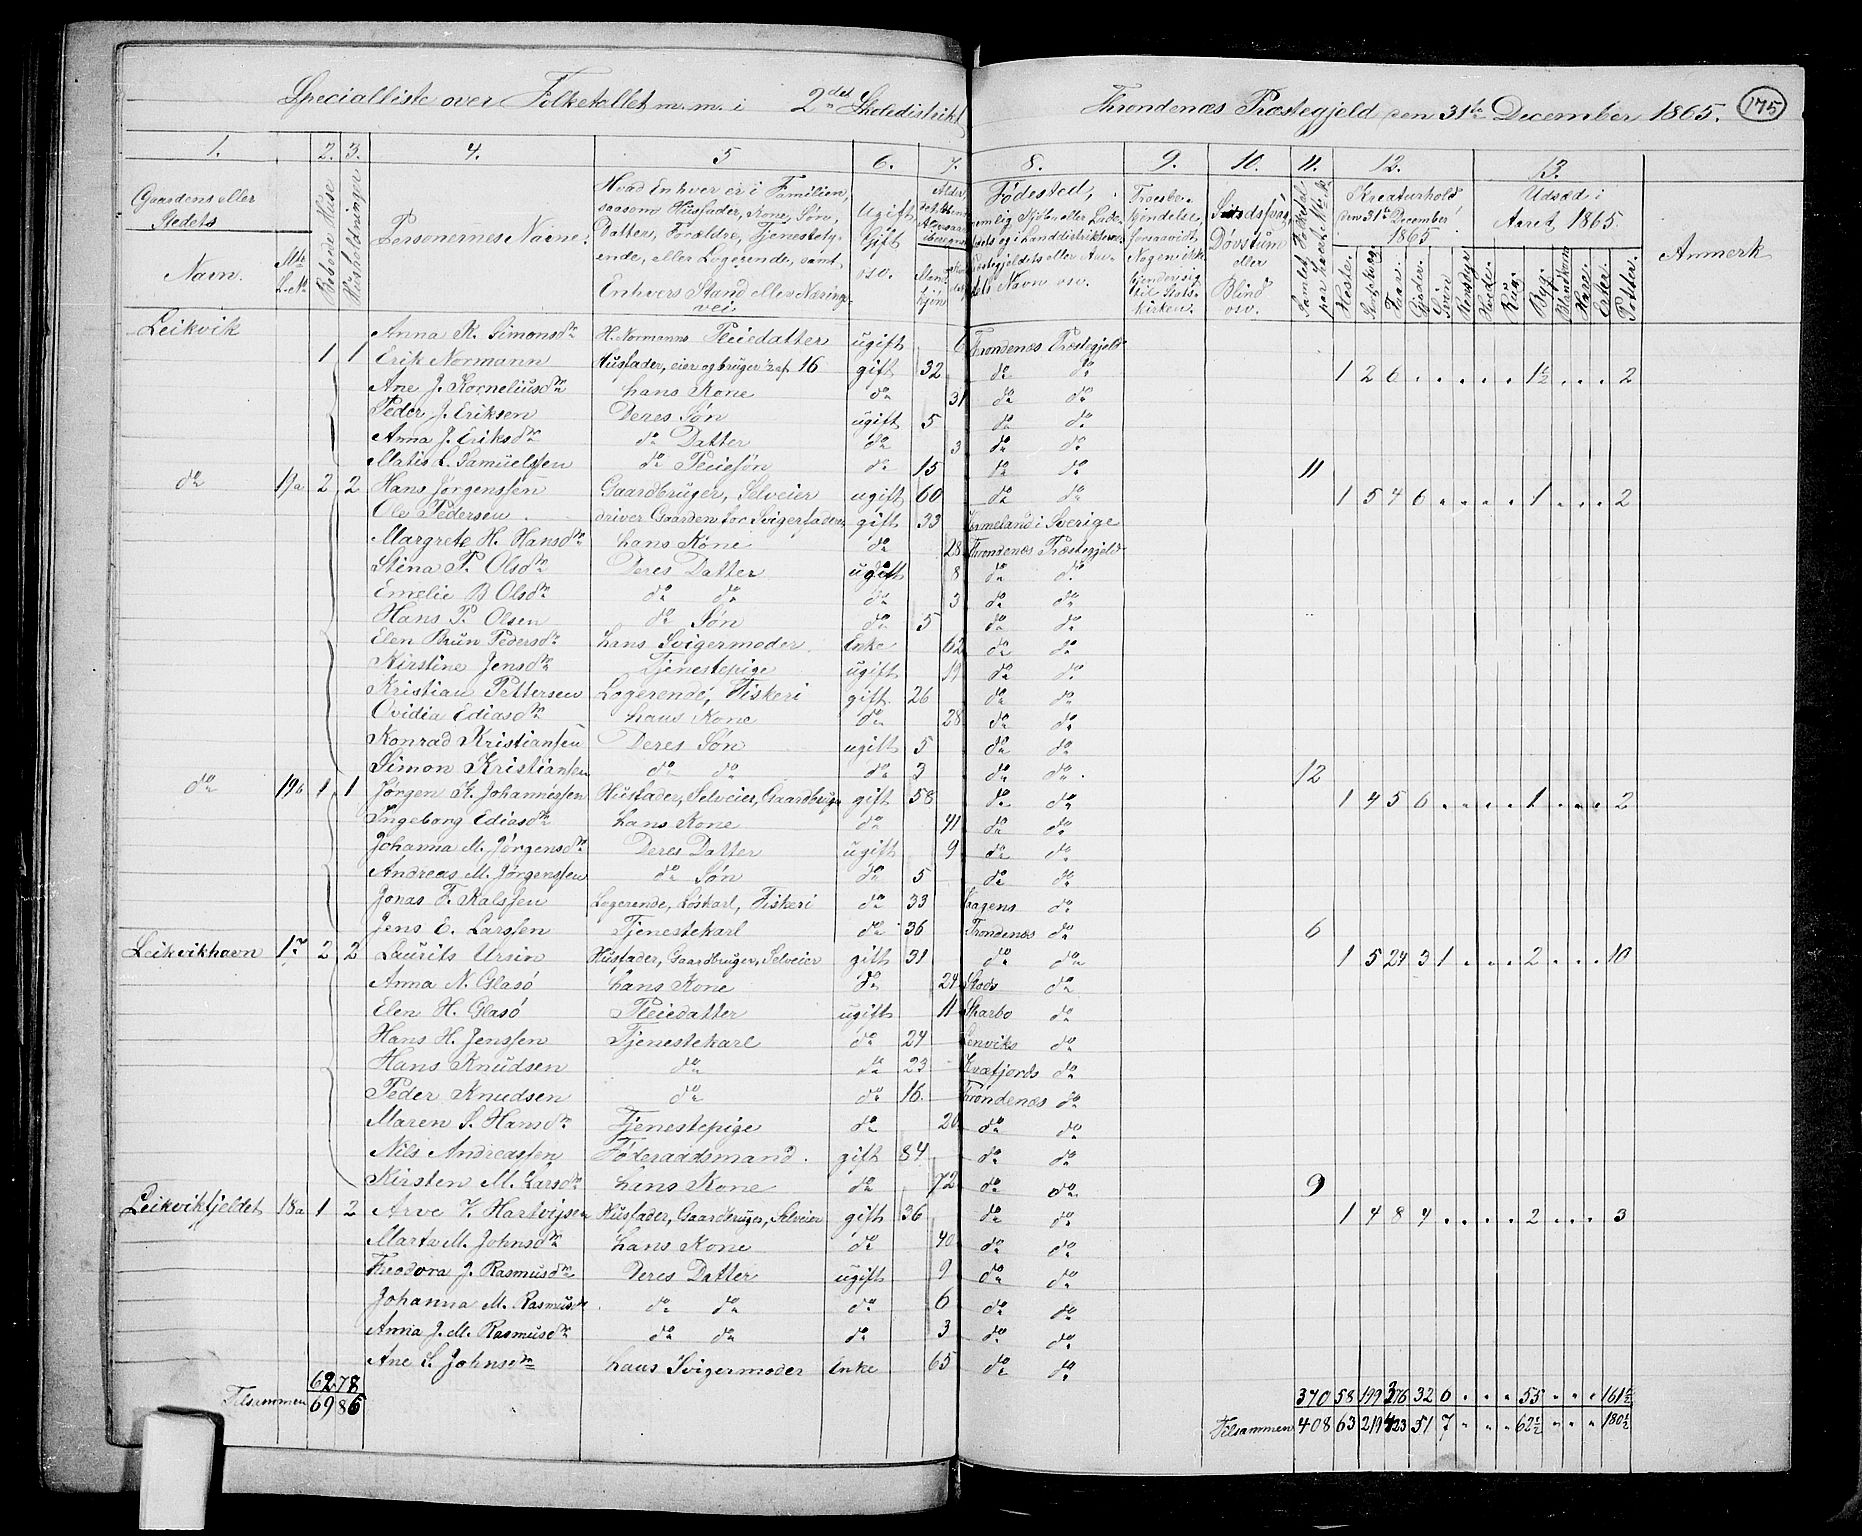 Specialliste over Folketallet m. m. i 2det Skoledistrikt Throndenæs Præstegjeld den 31te December 1865. 175
1. 2. 3. 4. 5 6. 7. 8. 9. 10. 11. 12. 13.
Gaardens eller Stedets Navn. Mtr. L. No Beboede Huse Husholdninger Personernes Navne. Hvad Enhver er i Familien, saasom Husfader, Kone, Søn, Datter, Forældre, Tjenestetyende, eller Logerende, samt Enhvers Stand eller Næringsvei. Ugift Gift osv. Fødested, Døvstum eller Blind osv. Kreaturhold den 31te December 1865 Udsæd i Aaret 1865. Anmerk
Heste. Faar. Gjeder. Svin Rensdyr Hvede. Rug. Byg. Blandkorn Havre. Erter. Poteter.
Leikvik Anna K. Simonsdr H. Normanns Pleiedatter ugift 6 Trondenæs Præstegjeld
1 1 Erik Normann Husfader, eier og bruger 16 gift 32 do do 1 2 6 . . . . . 1½ . . . 2
Ane J. Korneliusdr hans Kone do 31 do do
Peder J. Eriksen Deres Søn ugift 5 do do
Anna J. Eriksdr do Datter do 3 do do
Matis L. Samuelssen do Pleiesøn do 15 do do 11
do 19a 2 2 Hans Jørgenssen Gaardbruger, Selveier ugift 60 do do 1 5 4 6 . . . . 1 . . . 2
Ole Pedersen driver Gaarden for Svigerfaderen gift 33 Vermeland i Sverige
Margrete H. Hansdr hans Kone do 28 Trondenæs Præstegjeld
Stina P. Olsdr Deres Datter ugift 8 do do
Emelie B Olsdr do do do 3 do do
Hans P. Olsen do Søn do 5 do do
Elen Brun Pedersdr hans Svigermoder Enke 62 do do
Kirstine Jensdr Tjenestepige ugift 19 do do
Kristian Pettersen Logerende, Fiskeri gift 26 do do
Ovidia Ediasdr hans Kone do 28 do do
Konrad Kristiansen Deres Søn ugift 5 do do
Simon Kristiansen do do do 3 do do 12
do 19b 1 1 Jørgen K. Johannessen Husfader, Selveier, Gaardbruger gift 58 do do 1 4 5 6 . . . . 1 . . . 2
Ingeborg Ediasdr hans Kone do 41 do do
Johanna M. Jørgensdr Deres Datter ugift 9 do do
Andreas M. Jørgenssen do Søn do 5 do do
Jonas F. Kalssen Logerende, Løskarl, Fiskeri do 33 do
Jens E. Larssen Tjenestekarl do 36 Trondenæs do 6
Leikvikhavn 17 2 2 Laurits Ursin Husfader, Gaardbruger, Selveier gift 31 do do 1 5 24 3 1 . . . 2 . . . 10
Anna N. Glasø hans Kone do 24 Stods do
Elen H. Glasø Pleiedatter ugift 11 do
Hans H. Jenssen Tjenestekarl do 24 Lenviks do
Hans Knudsen do do 23 Kvæfjords do
Peder Knudsen do do 16. Trondenæs do
Maren S. Hansdr Tjenestepige do 20 do do
Nils Andreassen Føderaadsmand. gift 84 do do
Kirsten M. Larsdr hans Kone do 72 do do 9
Leikvikfjeldet 18a 1 2 Arve Z Hartvigsen Husfader, Gaardbruger, Selveier gift 36 do do 1 4 8 4 . . . . 2 . . . 3
Marta M. Johnsdr hans Kone do 40 do do
Theodora J. Rasmusdr Deres Datter ugift 9 do do
Johanna M. Rasmusdr do do do 6 do do
Anna J. M. Rasmusdr do do do 3 do do
Ane S. Johnsdr hans Svigermoder Enke 65 do do
62 78 370 58 199 376 32 6 . . . 55 . . . 161½
Tilsammen 69 86 Tilsammen 408 63 219 423 51 7 . . . 62½ . . . 180½